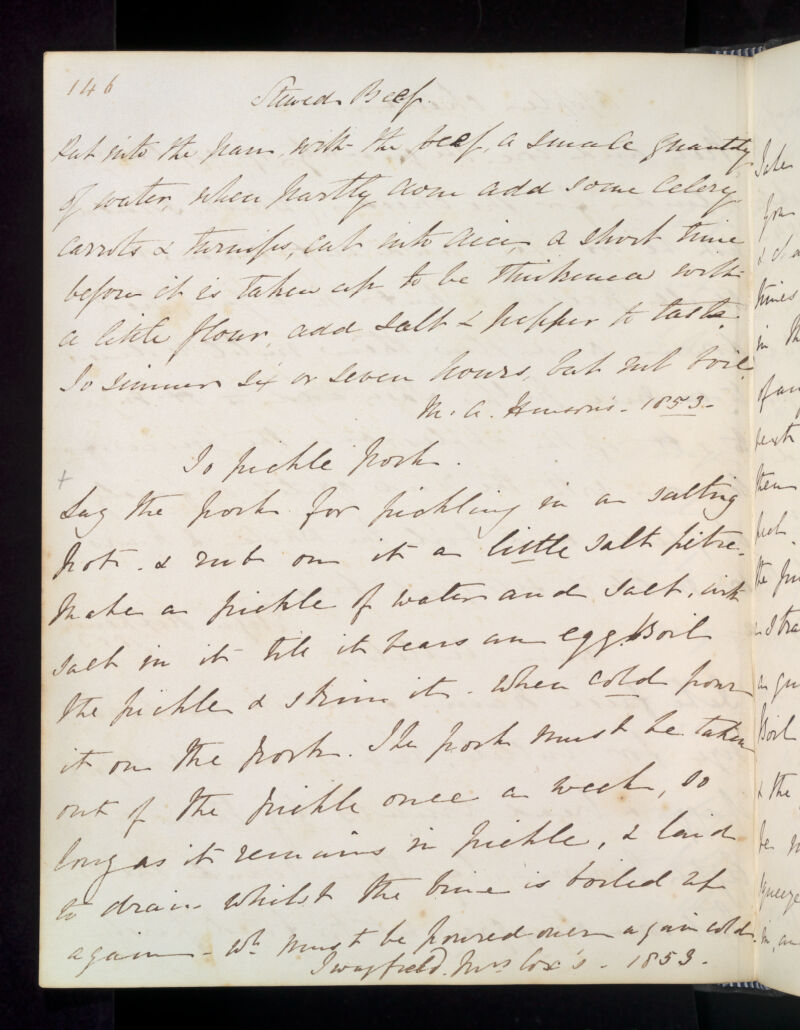 146
Stewed Beef.
Put into the pan with the beef, a small quantity
of water, when partly done add some celery
carrots & turnips, cut into dice, a short time
before it is taken up to be thickened with
a little flour, add salt & pepper to taste.
To simmer six or seven hours, but not boil.
M. A. 1853.
To pickle Pork.
+
Lay the pork for pickling in a salting
pot. & rub on it a little salt petre.
Make a pickle of water and salt, with
salt in it till it bears an egg. Boil
the pickle & skim it. when cold pour
it on the Pork. The pork must be taken
out of the pickle once a week, so
long as it remains in pickle, & laid
to drain whilst the brine is boiled up
again - wh must be poured over again cold.
Mrs Cox's - 1853.
Take
& the
in
then
the
Boil
& the